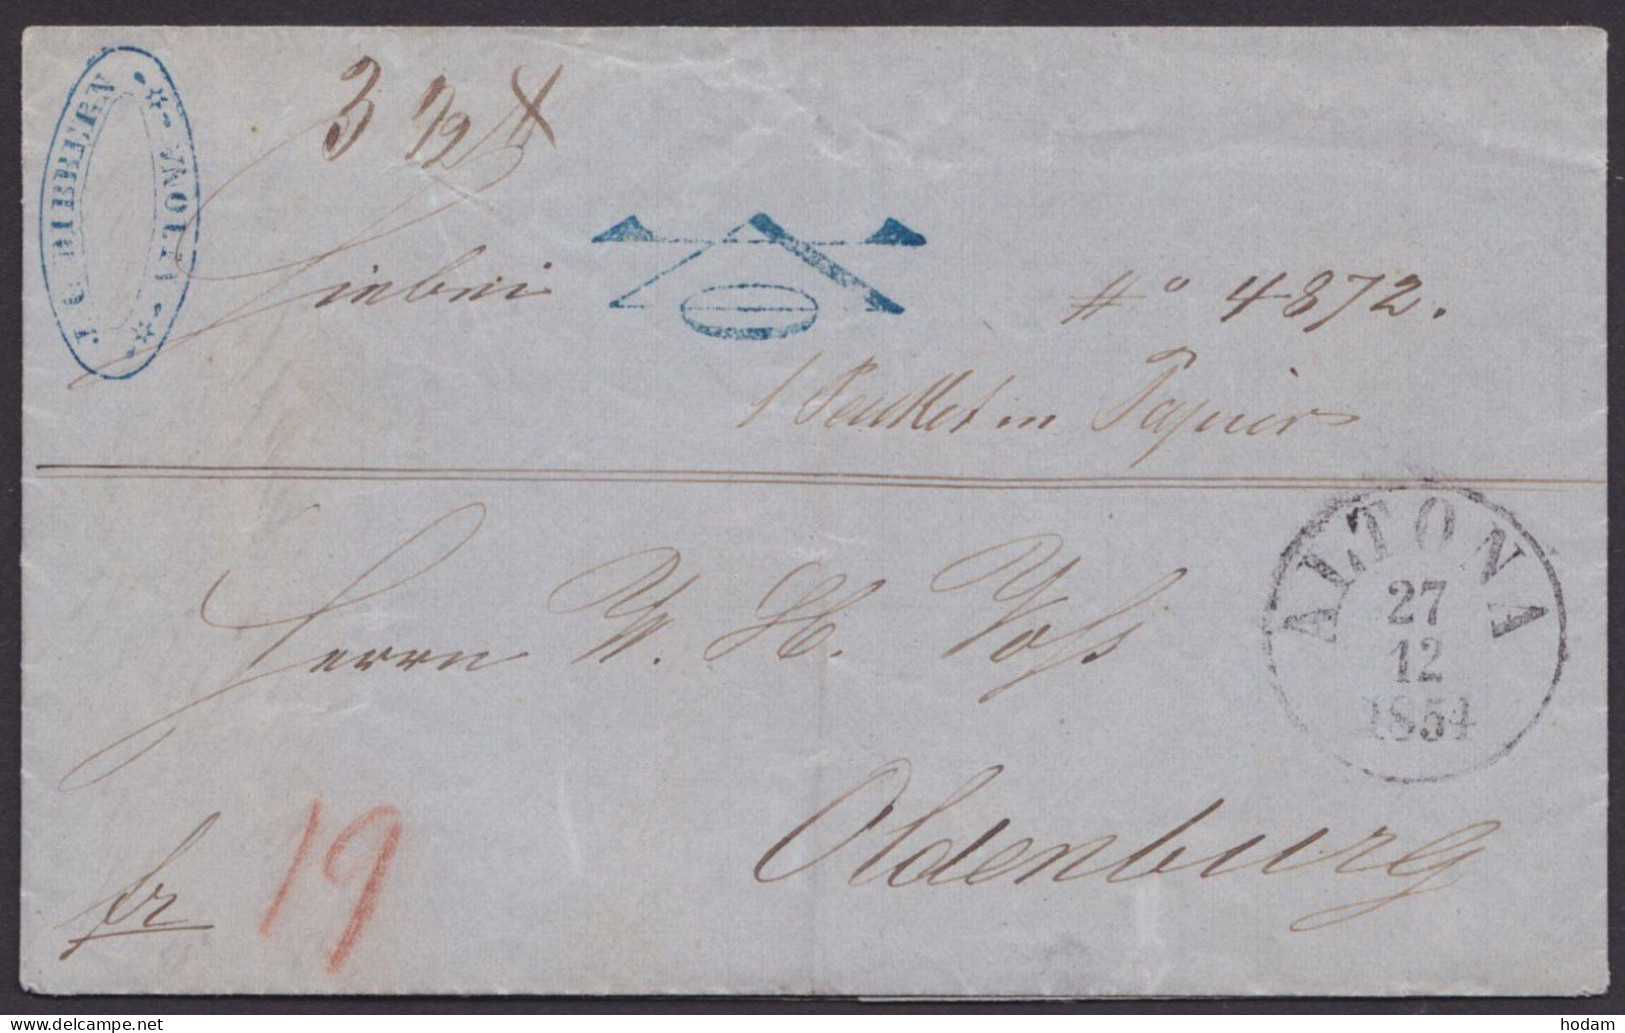 J. C. DIBBERN
ALTONA
3 1/2 ℔
Hiebei
No 4872.
1 Packet in Papier
Herrn W. H. Voß
ALTONA
27
12
1854
Oldenburg
fr
19
hodam
delcampe.net